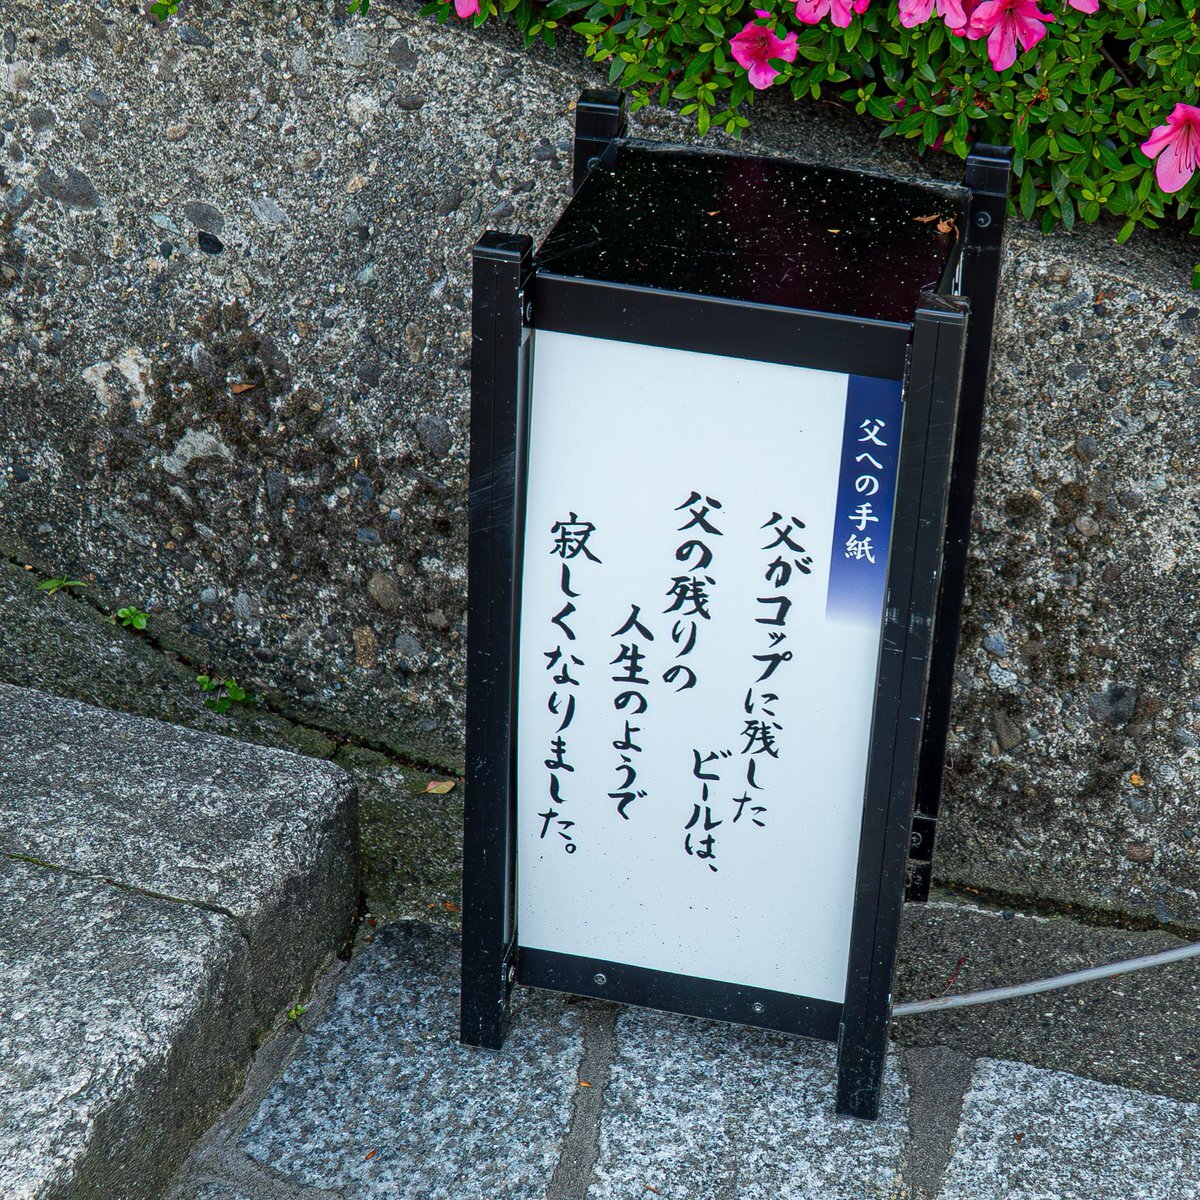 父への手紙
父がコップに残した
ビールは、
父の残りの
人生のようで
寂しくなりました。